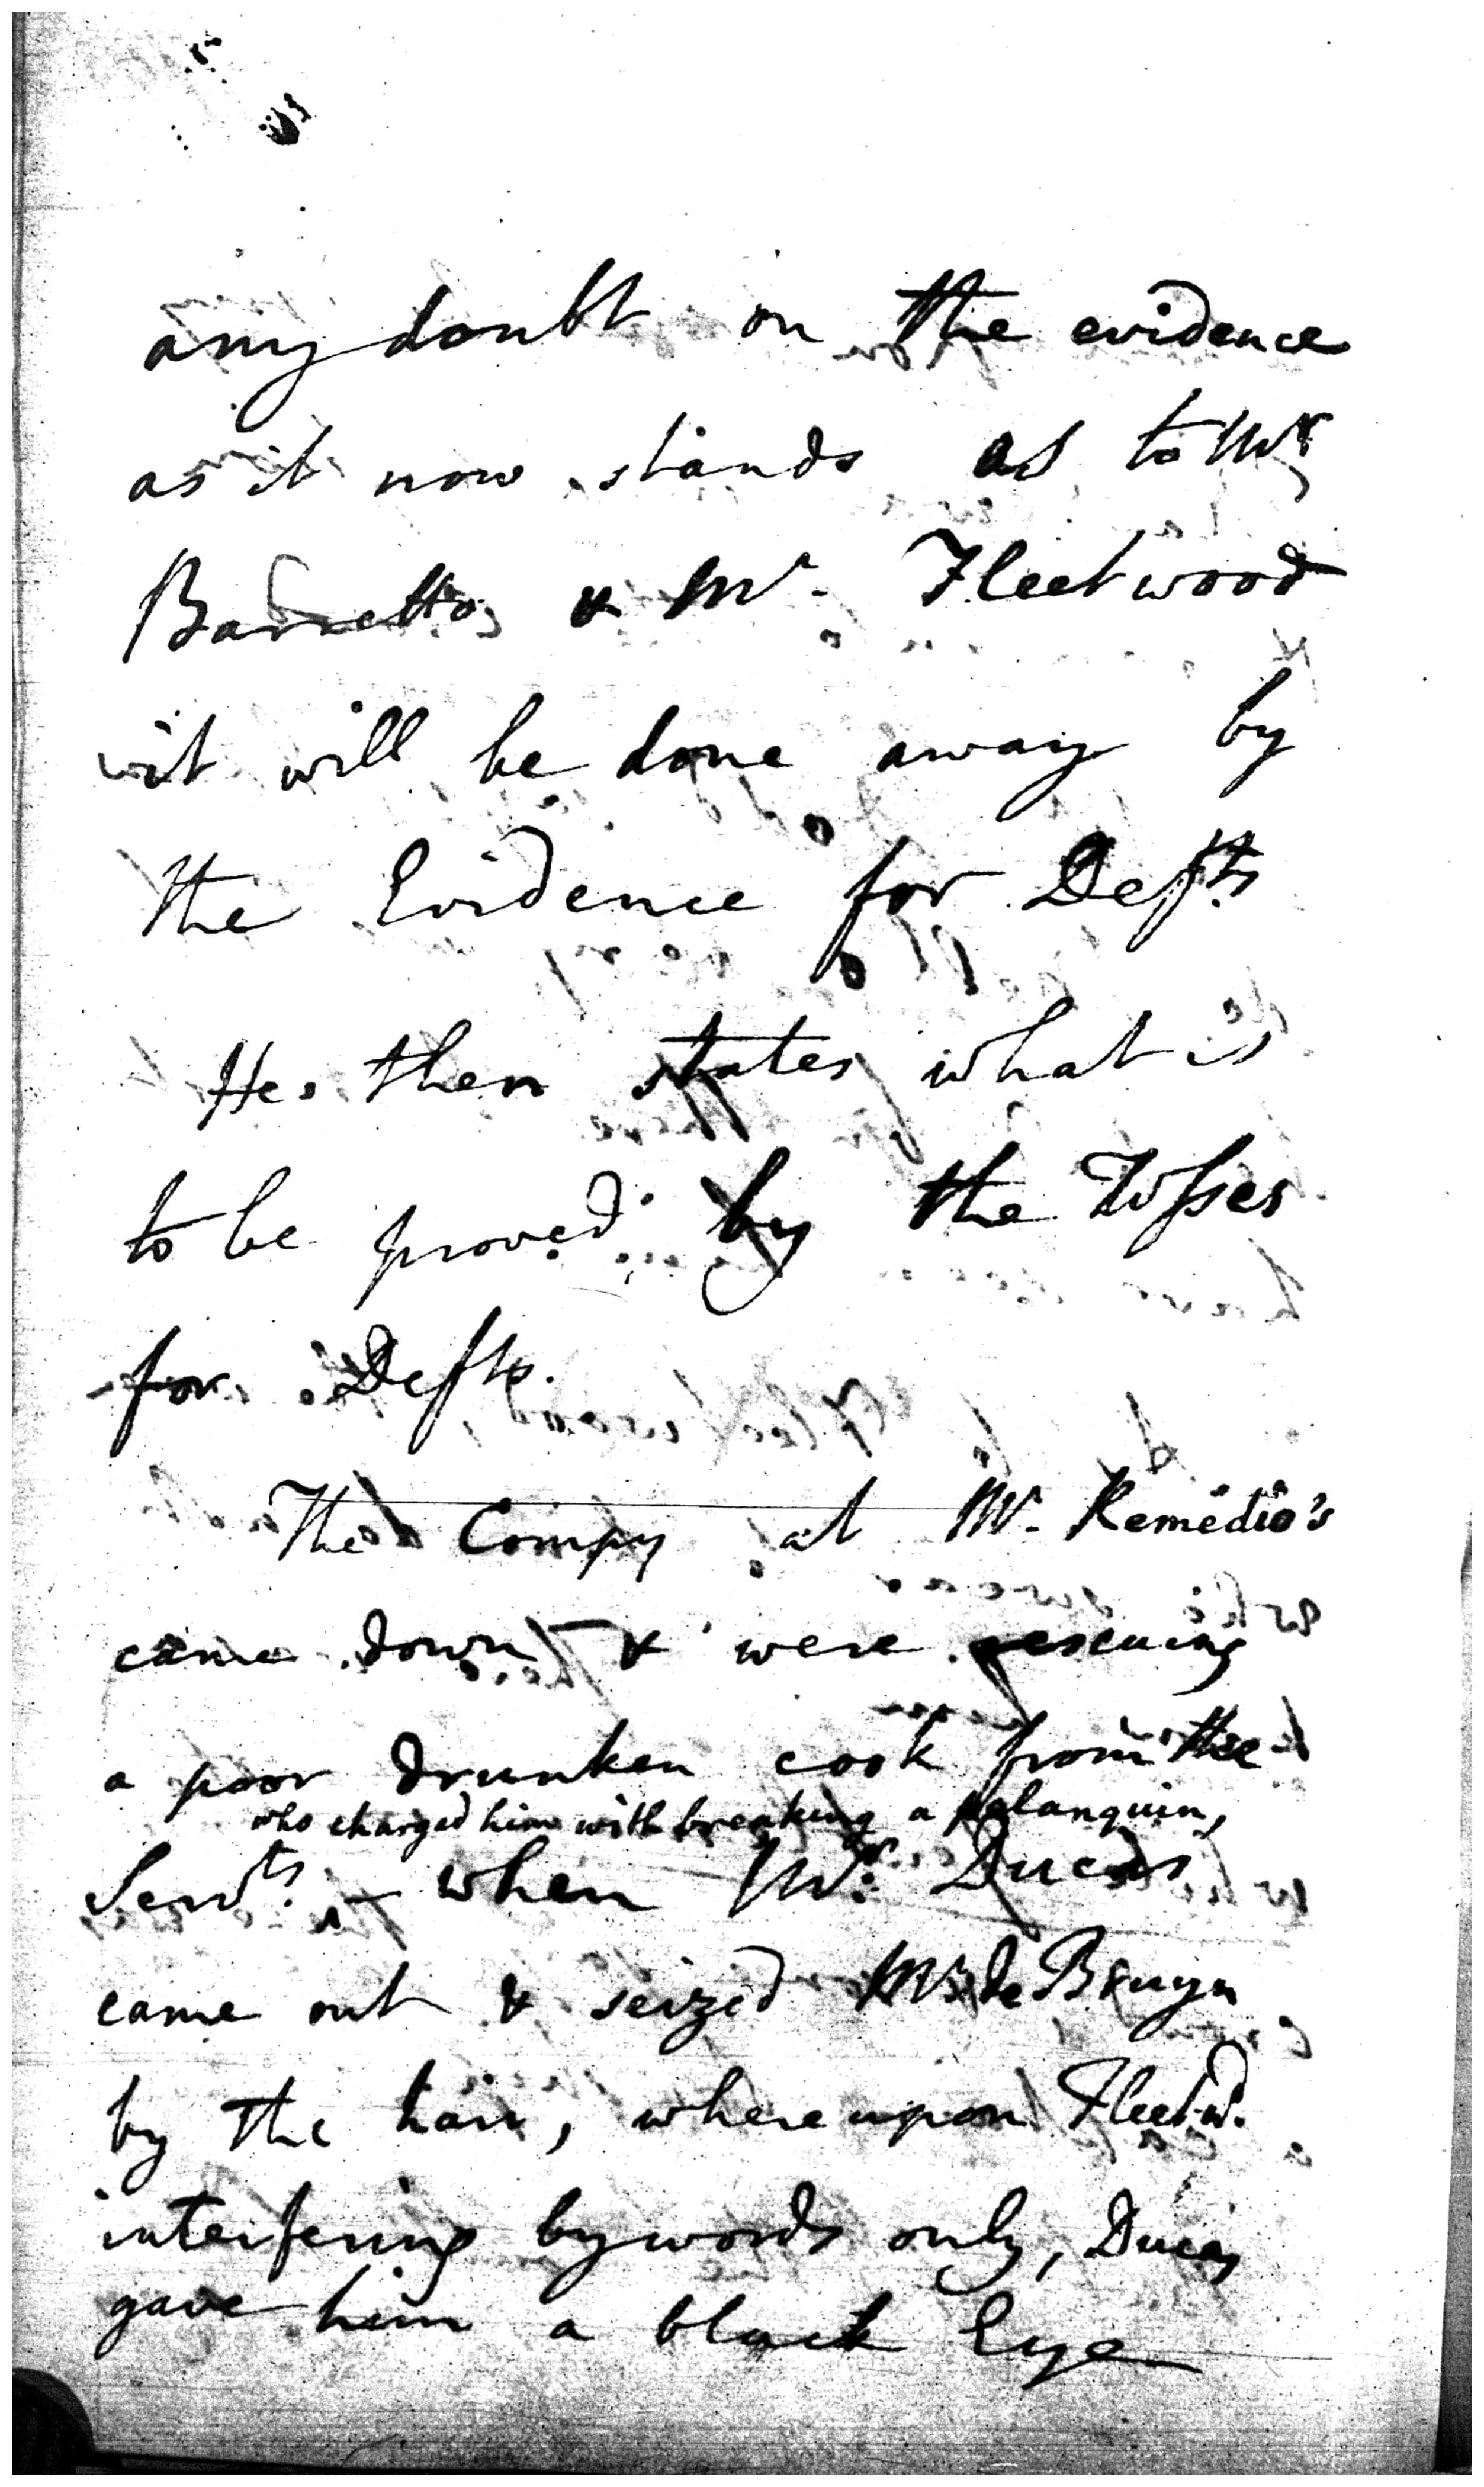 any doubt on the evidence
as it now stands as to Mr
Barretto & Mr. Fleetwood
it will be done away by
the Evidence for Defts
He then states what is
to be proved by the Wsses
for Defts.
The Compy at Mr. Remedio's
came down & were rescuing
a poor drunken cook from the
who charged him with breaking a palanquin,
Servts. - when Mr. Ducas
came out & seized Mr de Bruyn
by the hair, whereupon Fleetwd.
interfering by words only, Ducas
gave him a black Eye